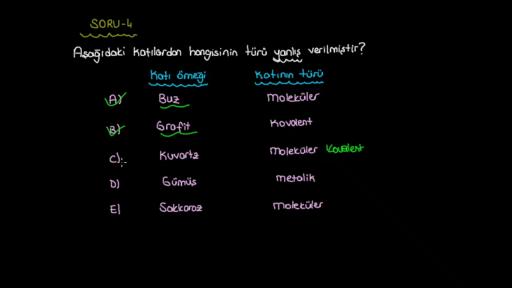 SORU-4
Aşağıdaki katılardan hangisinin türü yanlış verilmiştir?
Katı örneği Katının türü
A) Buz Moleküler
B) Grafit Kovalent
C) Kuvartz Moleküler Kovalent
D) Gümüş Metalik
E) Sakkaroz Moleküler